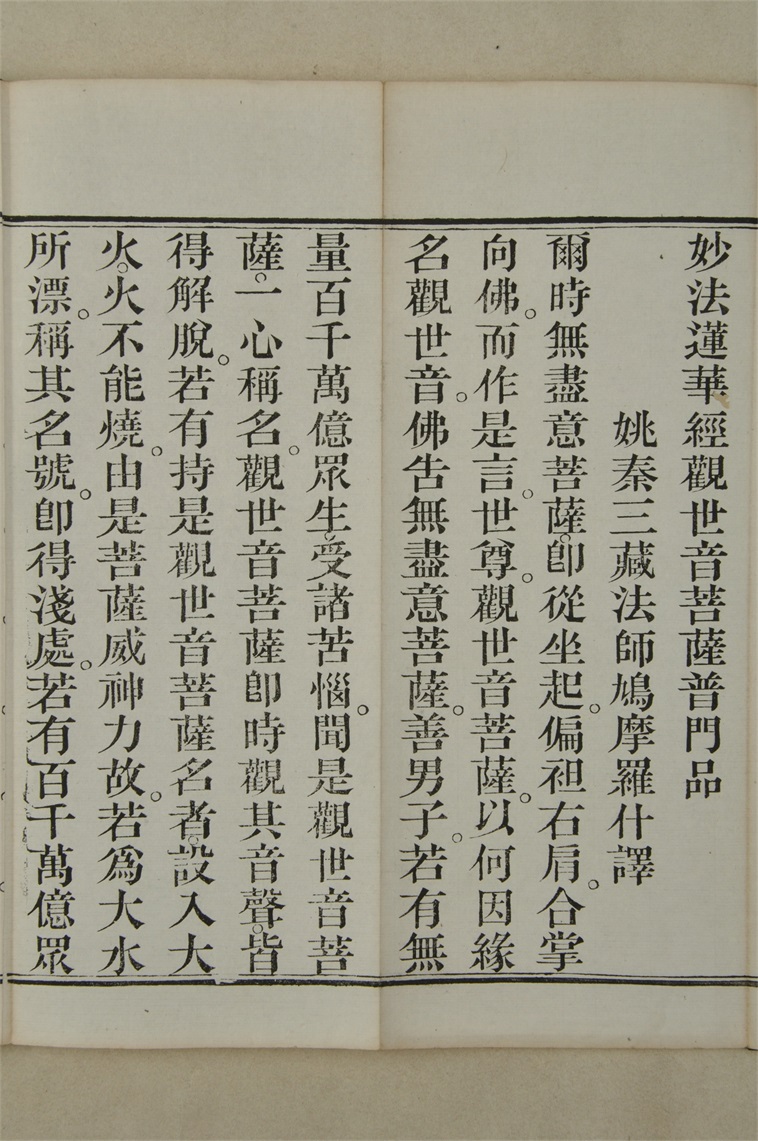 妙法蓮華經觀世音菩薩普門品
姚秦三藏法師鳩摩羅什譯
爾時無盡意菩薩。卽從坐起。偏袒右肩。合掌
向佛。而作是言。世尊。觀世音菩薩。以何因緣
名觀世音。佛吿無盡意菩薩。善男子。若有無
量百千萬億眾生。受諸苦惱。聞是觀世音菩
薩。一心稱名。觀世音菩薩卽時觀其音聲。皆
得解脫。若有持是觀世音菩薩名者。設入大
火。火不能燒。由是菩薩威神力故。若爲大水
所漂。稱其名號。卽得淺處。若有百千萬億眾